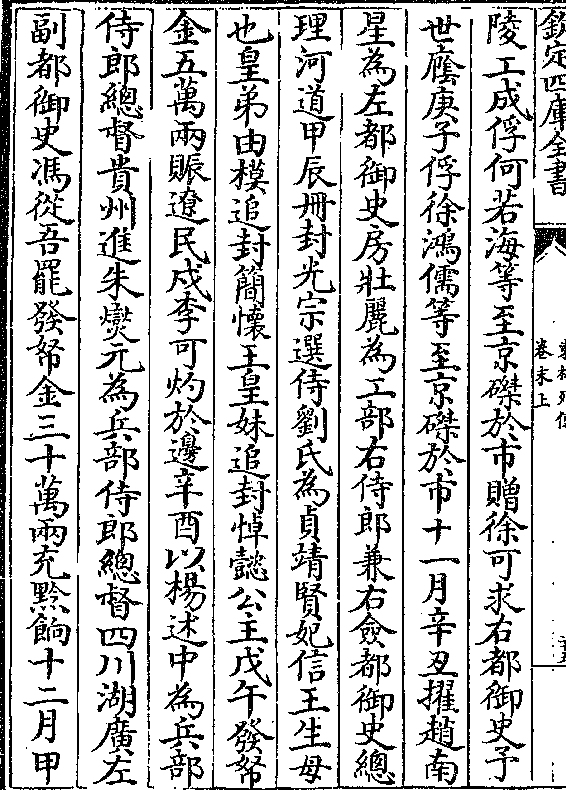 欽定四庫全書
卷末上
陵工成俘何若海等至京磔於市贈徐可求右都御史予
世廕庚子俘徐鴻儒等至京磔於市十一月辛丑擢趙南
星為左都御史房壯麗為工部右侍郎兼右僉都御史總
理河道甲辰冊封光宗選侍劉氏為貞靖賢妃信王生母
也皇弟由模追封簡懷王皇妹追封悼懿公主戊午發帑
金五萬兩賑遼民戍李可灼於邊辛酉以楊述中為兵部
侍郎總督貴州進朱燮元為兵部侍郎總督四川湖廣左
副都御史馮從吾罷發帑金三十萬兩充黔餉十二月甲